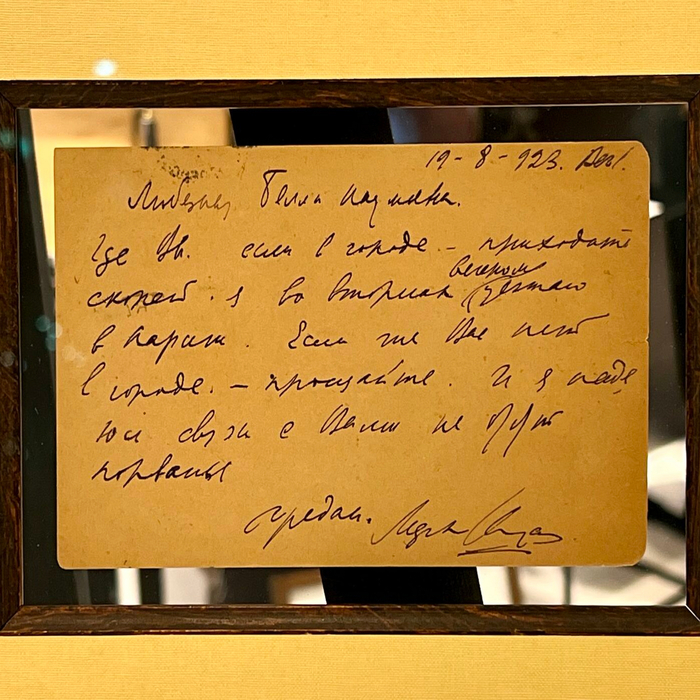 19-8-923.
Любезная Белла Наумовна.
Где Вы. если в городе — приходите
скорей. я во вторник вечером уезжаю
в Париж. Если же Вас нет
в городе. — прощайте. И я наде
юсь связи с Вами не будут
порваны
предан.